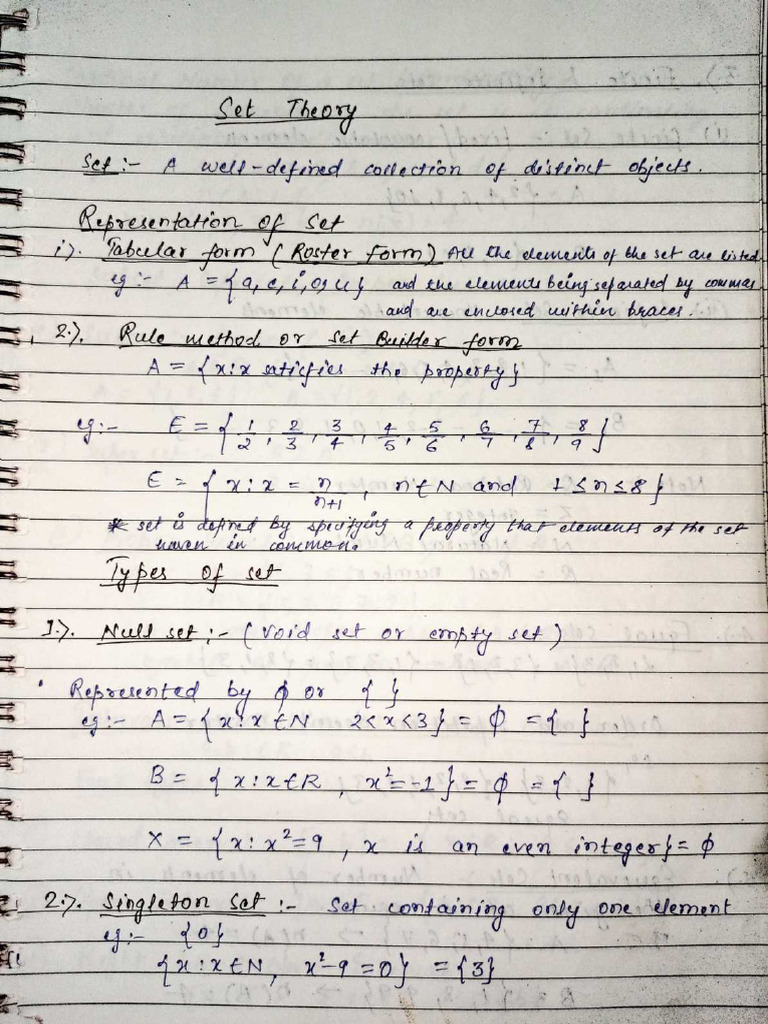 Set Theory
Set :- A well-defined collection of distinct objects.
Representation of Set
i). Tabular form (Roster form) All the elements of the set are listed
eg :- A = {a, e, i, o, u} and the elements being separated by commas
and are enclosed within braces.
2.). Rule method or set Builder form
A = {x : x satisfies the property}
eg :- E = {1/2, 2/3, 3/4, 4/5, 5/6, 6/7, 7/8, 8/9}
E = {x : x = n/n+1, n∈N and 1≤n≤8}
* set is defined by specifying a property that elements of the set
haven in common.
Types of set
1.). Null set :- (void set or empty set)
• Represented by ϕ or { }
eg :- A = {x : x∈N 2<x<3} = ϕ = { }
B = {x : x∈R, x²=-1} = ϕ = { }
X = {x : x²=9, x is an even integer} = ϕ
2.). Singleton Set :- Set containing only one element
eg :- {0}
{x : x∈N, x²-9=0} = {3}